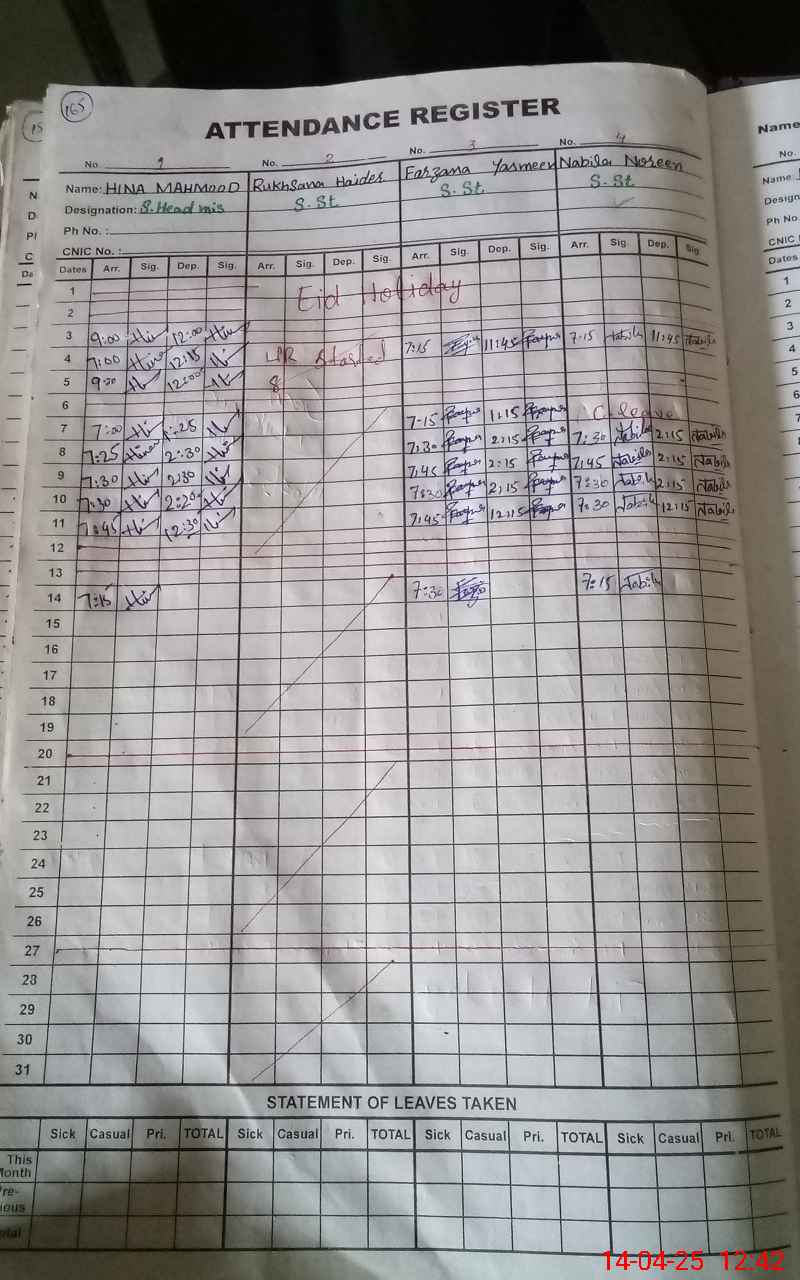 165
ATTENDANCE REGISTER
No. 1 No. 2 No. 3 No. 4
Name: HINA MAHMOOD Rukhsana Haider Farzana Yasmeen Nabila Noreen
Designation: S.Head mis S.St S.St S.St
Ph No.:
CNIC No.:
Dates Arr. Sig. Dep. Sig. Arr. Sig. Dep. Sig. Arr. Sig. Dep. Sig. Arr. Sig. Dep. Sig.
1 Eid Holiday
2
3 9:00 12:00
4 7:00 12:15 LPR Started 7:15 11:45 7:15 Nabila 11:45 Nabila
5 9:00 12:00
6
7 7:00 1:25 7:15 1:15 C. leave
8 7:25 2:30 7:30 2:15 7:30 Nabila 2:15 Nabila
9 7:30 2:30 7:45 2:15 7:45 Nabila 2:15 Nabila
10 7:30 2:20 7:30 2:15 7:30 Nabila 2:15 Nabila
11 7:45 12:30 7:45 12:15 7:30 Nabila 12:15 Nabila
12
13
14 7:15 7:30 7:15 Nabila
15
16
17
18
19
20
21
22
23
24
25
26
27
28
29
30
31
STATEMENT OF LEAVES TAKEN
Sick Casual Pri. TOTAL Sick Casual Pri. TOTAL Sick Casual Pri. TOTAL Sick Casual Pri. TOTAL
This
Month
Pre-
ious
otal
Name
No.
Name:
Design
Ph No.
CNIC
Dates
1
2
3
4
5
6
7
8
14-04-25 12:42